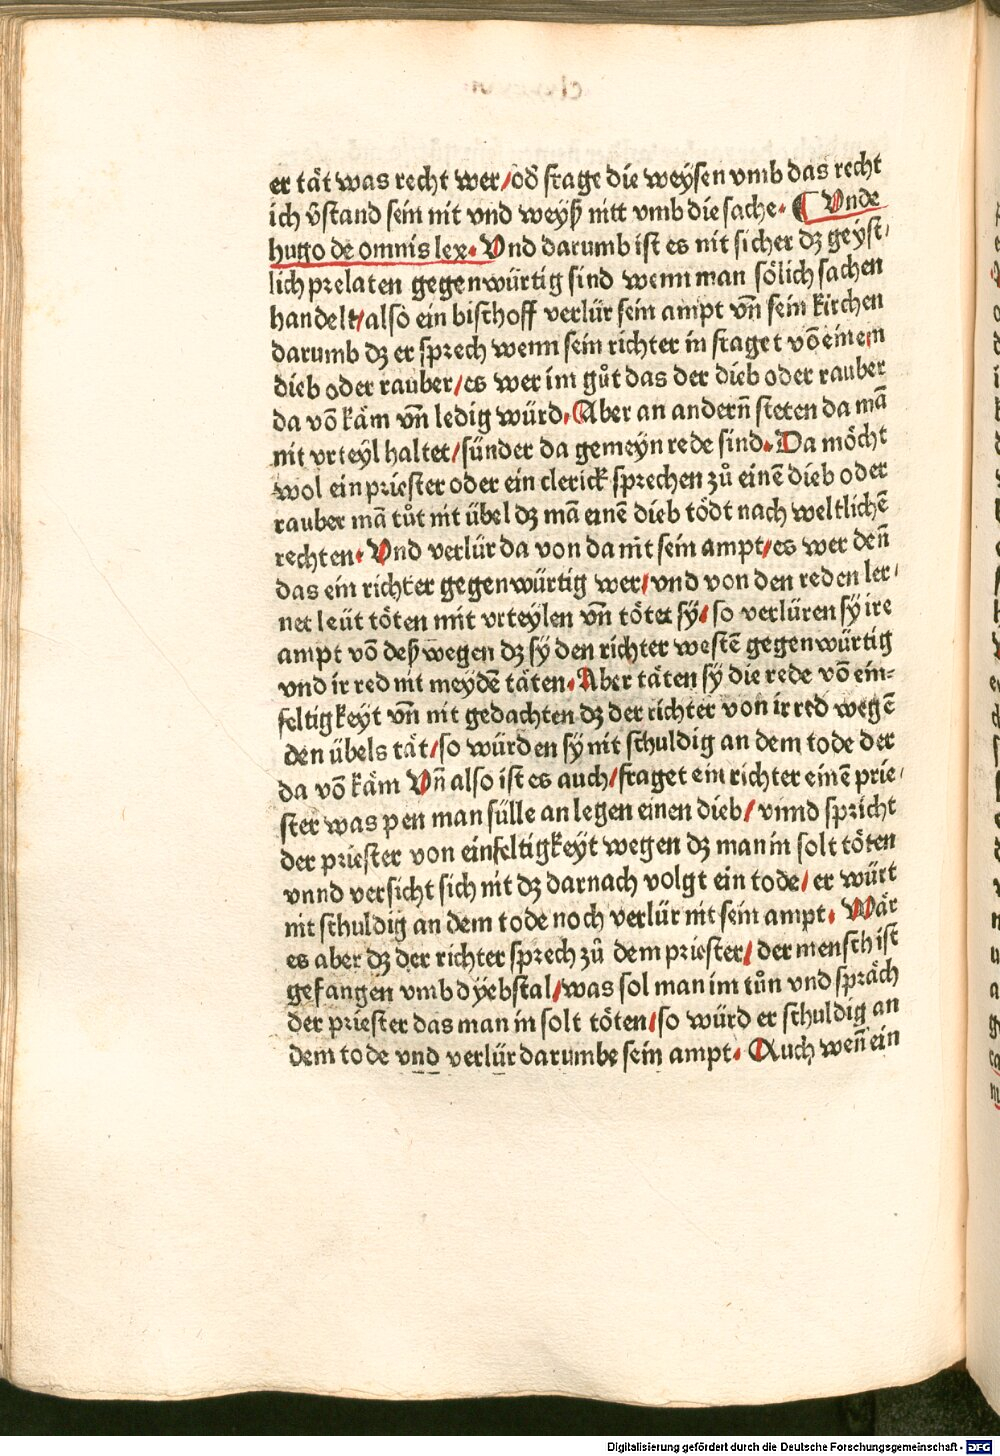 er tät was recht wer/od̄ frage die weysen vmb das recht
ich v̄stand sein nit vnd weyß nitt vmb die sache. ¶ Vnde
hugo de omnis lex. Vnd darumb ist es nit sicher dz geyst⸗
lich prelaten gegenwürtig sind wenn man sölich sachen
handelt/also ein bischoff verlür sein ampt vn̄ sein kirchen
darumb dz er sprech wenn sein richter in fraget vō einem
dieb oder rauber/es wer im gůt das der dieb oder rauber
da vō käm vn̄ ledig würd. Aber an andern̄ steten da mā
nit vrteyl haltet/sünder da gemeyn rede sind. Da möcht
wol ein priester oder ein clerick sprechen zů einē dieb oder
rauber mā tůt nit übel dz mā einē dieb tödt nach weltlichē
rechten. Vnd verlür da von da nit sein ampt/es wer den̄
das ein richter gegenwürtig wer/vnd von den reden ler⸗
net leüt töten mit vrteylen vn̄ tötet sy/so verlüren sy ire
ampt vō deß wegen dz sy den richter westē gegenwürtig
vnd ir red nit meydē täten. Aber täten sy die rede vō ein⸗
feltigkeyt vn̄ nit gedachten dz der richter von ir red wegē
den übels tät/so würden sy nit schuldig an dem tode der
da vō käm Vn̄ also ist es auch/fraget ein richter einē prie⸗
ster was pen man sülle an legen einen dieb/ vnnd spricht
der priester von einfeltigkeyt wegen dz man in solt töten
vnnd versicht sich nit dz darnach volgt ein tode/er würt
nit schuldig an dem tode noch verlür nit sein ampt. Wär
es aber dz der richter sprech zů dem priester/der mensch ist
gefangen vmb dyebstal/was sol man im tůn vnd spräch
der priester das man in solt töten/so würd er schuldig an
dem tode vnd verlür darumbe sein ampt. Auch wen̄ ein
Digitalisierung gefördert durch die Deutsche Forschungsgemeinschaft - DFG